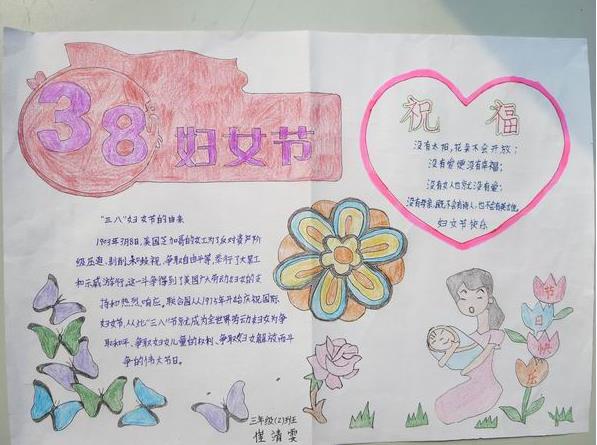 38 妇女节
祝福
没有太阳,花朵不会开放;
没有爱便没有幸福;
没有女人也就没有爱;
没有母亲,既不会有诗人,也不会有英雄。
妇女节快乐
"三八"妇女节的由来
1903年3月8日,美国芝加哥的女工为了反对资产阶
级压迫、剥削、和歧视,争取自由平等,举行了大罢工
和示威游行,这一斗争得到了美国广大劳动妇女的支
持和热烈响应。联合国从1975年开始庆祝国际
妇女节,从此"三八"节就成为全世界劳动妇女为争
取和平、争取妇女儿童的权利、争取妇女解放而斗
争的伟大节日。
节
日
快
乐
三年级(2)班
崔清雯